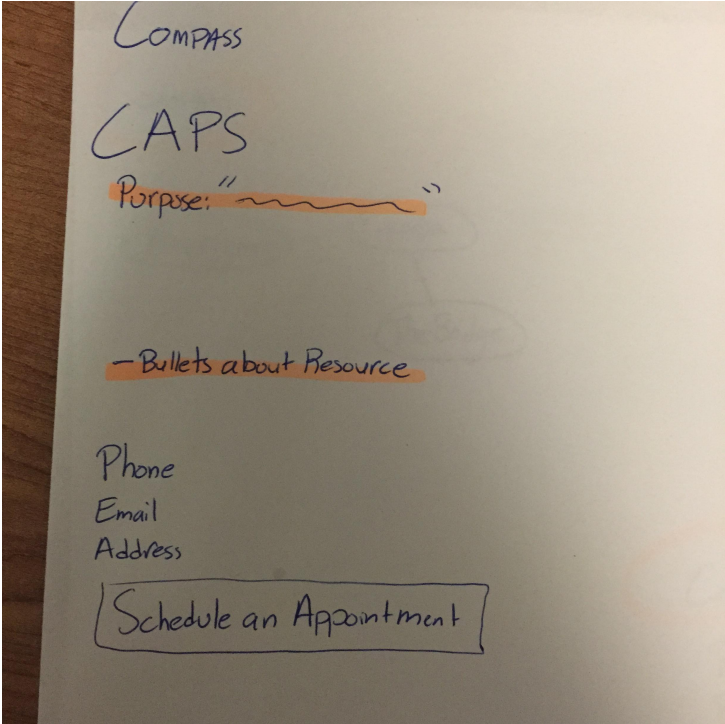 COMPASS
CAPS
Purpose: " "
- Bullets about Resource
Phone
Email
Address
Schedule an Appointment